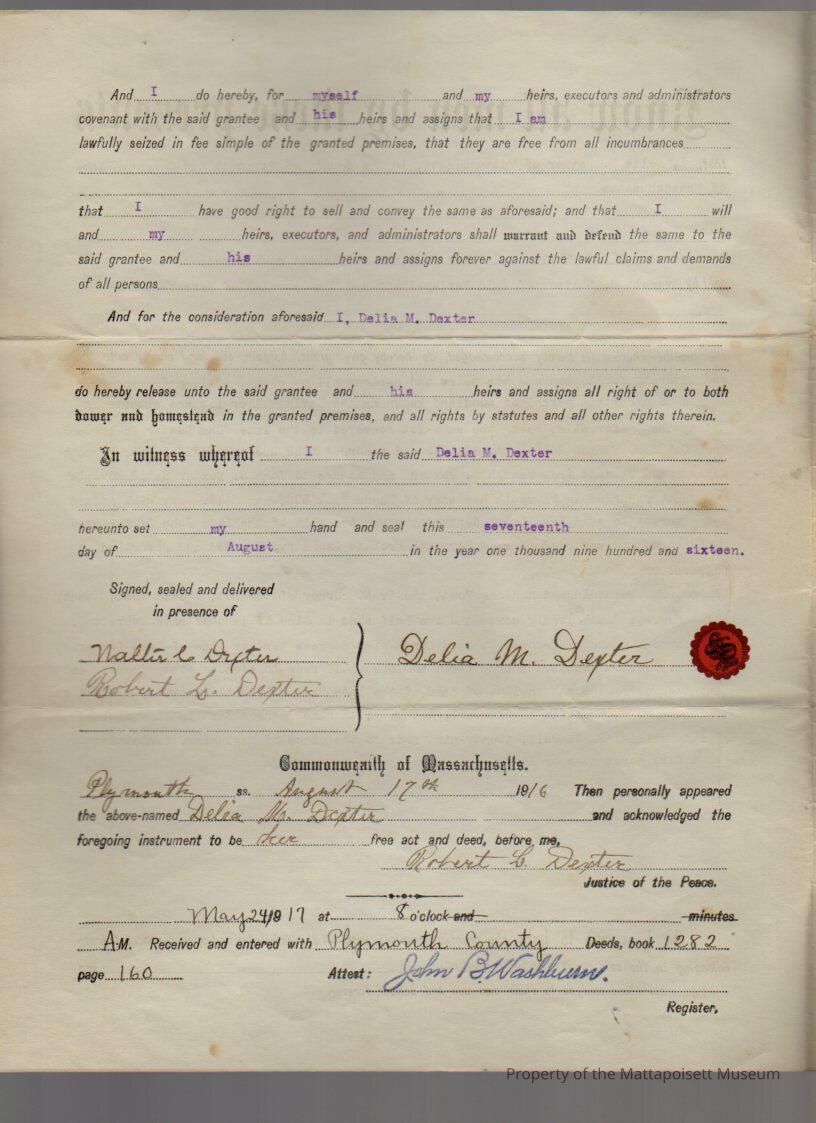 And I do hereby, for myself and my heirs, executors and administrators
covenant with the said grantee and his heirs and assigns that I am
lawfully seized in fee simple of the granted premises, that they are free from all incumbrances
that I have good right to sell and convey the same as aforesaid; and that I will
and my heirs, executors, and administrators shall warrant and defend the same to the
said grantee and his heirs and assigns forever against the lawful claims and demands
of all persons
And for the consideration aforesaid I, Delia M. Dexter
do hereby release unto the said grantee and his heirs and assigns all right of or to both
dower and homestead in the granted premises, and all rights by statutes and all other rights therein.
In witness whereof I the said Delia M. Dexter
hereunto set my hand and seal this seventeenth
day of August in the year one thousand nine hundred and sixteen.
Signed, sealed and delivered
in presence of
Walter C Dexter Delia M. Dexter
Robert L. Dexter
Commonwealth of Massachusetts.
Plymouth ss. August 17th 1916 Then personally appeared
the above-named Delia M. Dexter and acknowledged the
foregoing instrument to be her free act and deed, before me,
Robert L. Dexter
Justice of the Peace.
May 24 1917 at 8 o'clock and minutes
A.M. Received and entered with Plymouth County Deeds, book 1282
page 160 Attest: John B. Washburn.
Register.
Property of the Mattapoisett Museum